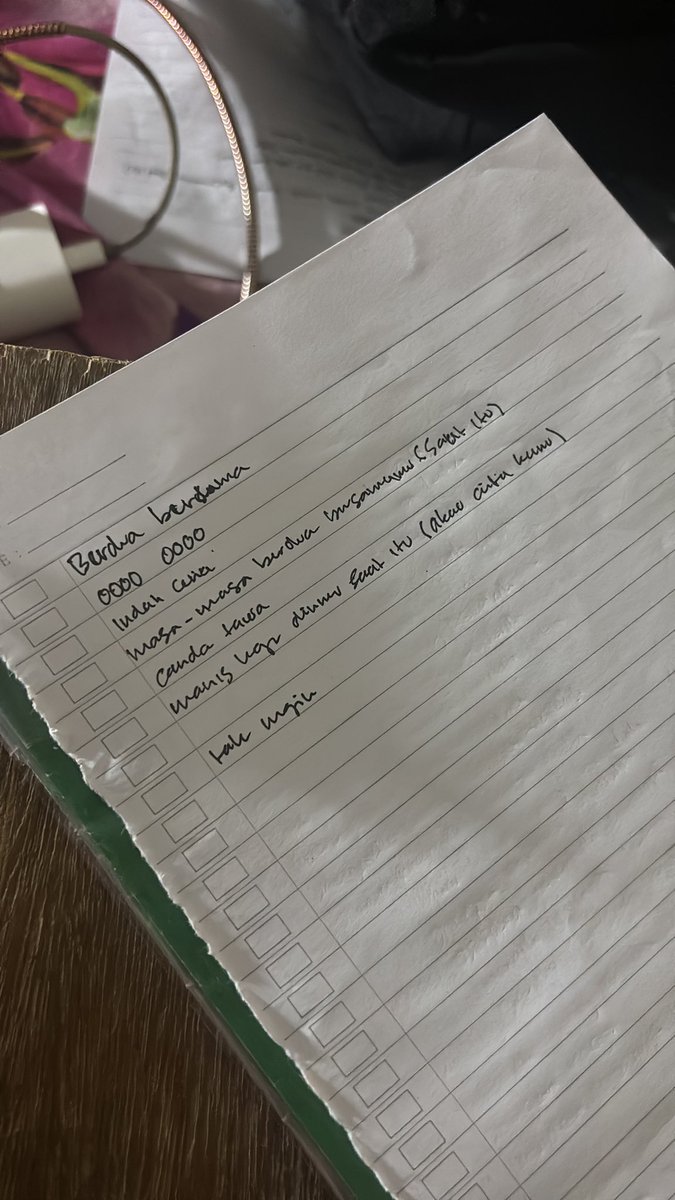 Berdua bersama
0000 0000
Indah ceria
masa-masa berdua bersamamu (saat itu)
canda tawa
manis kaya dirimu saat itu (akan cinta kamu)
tak ingin